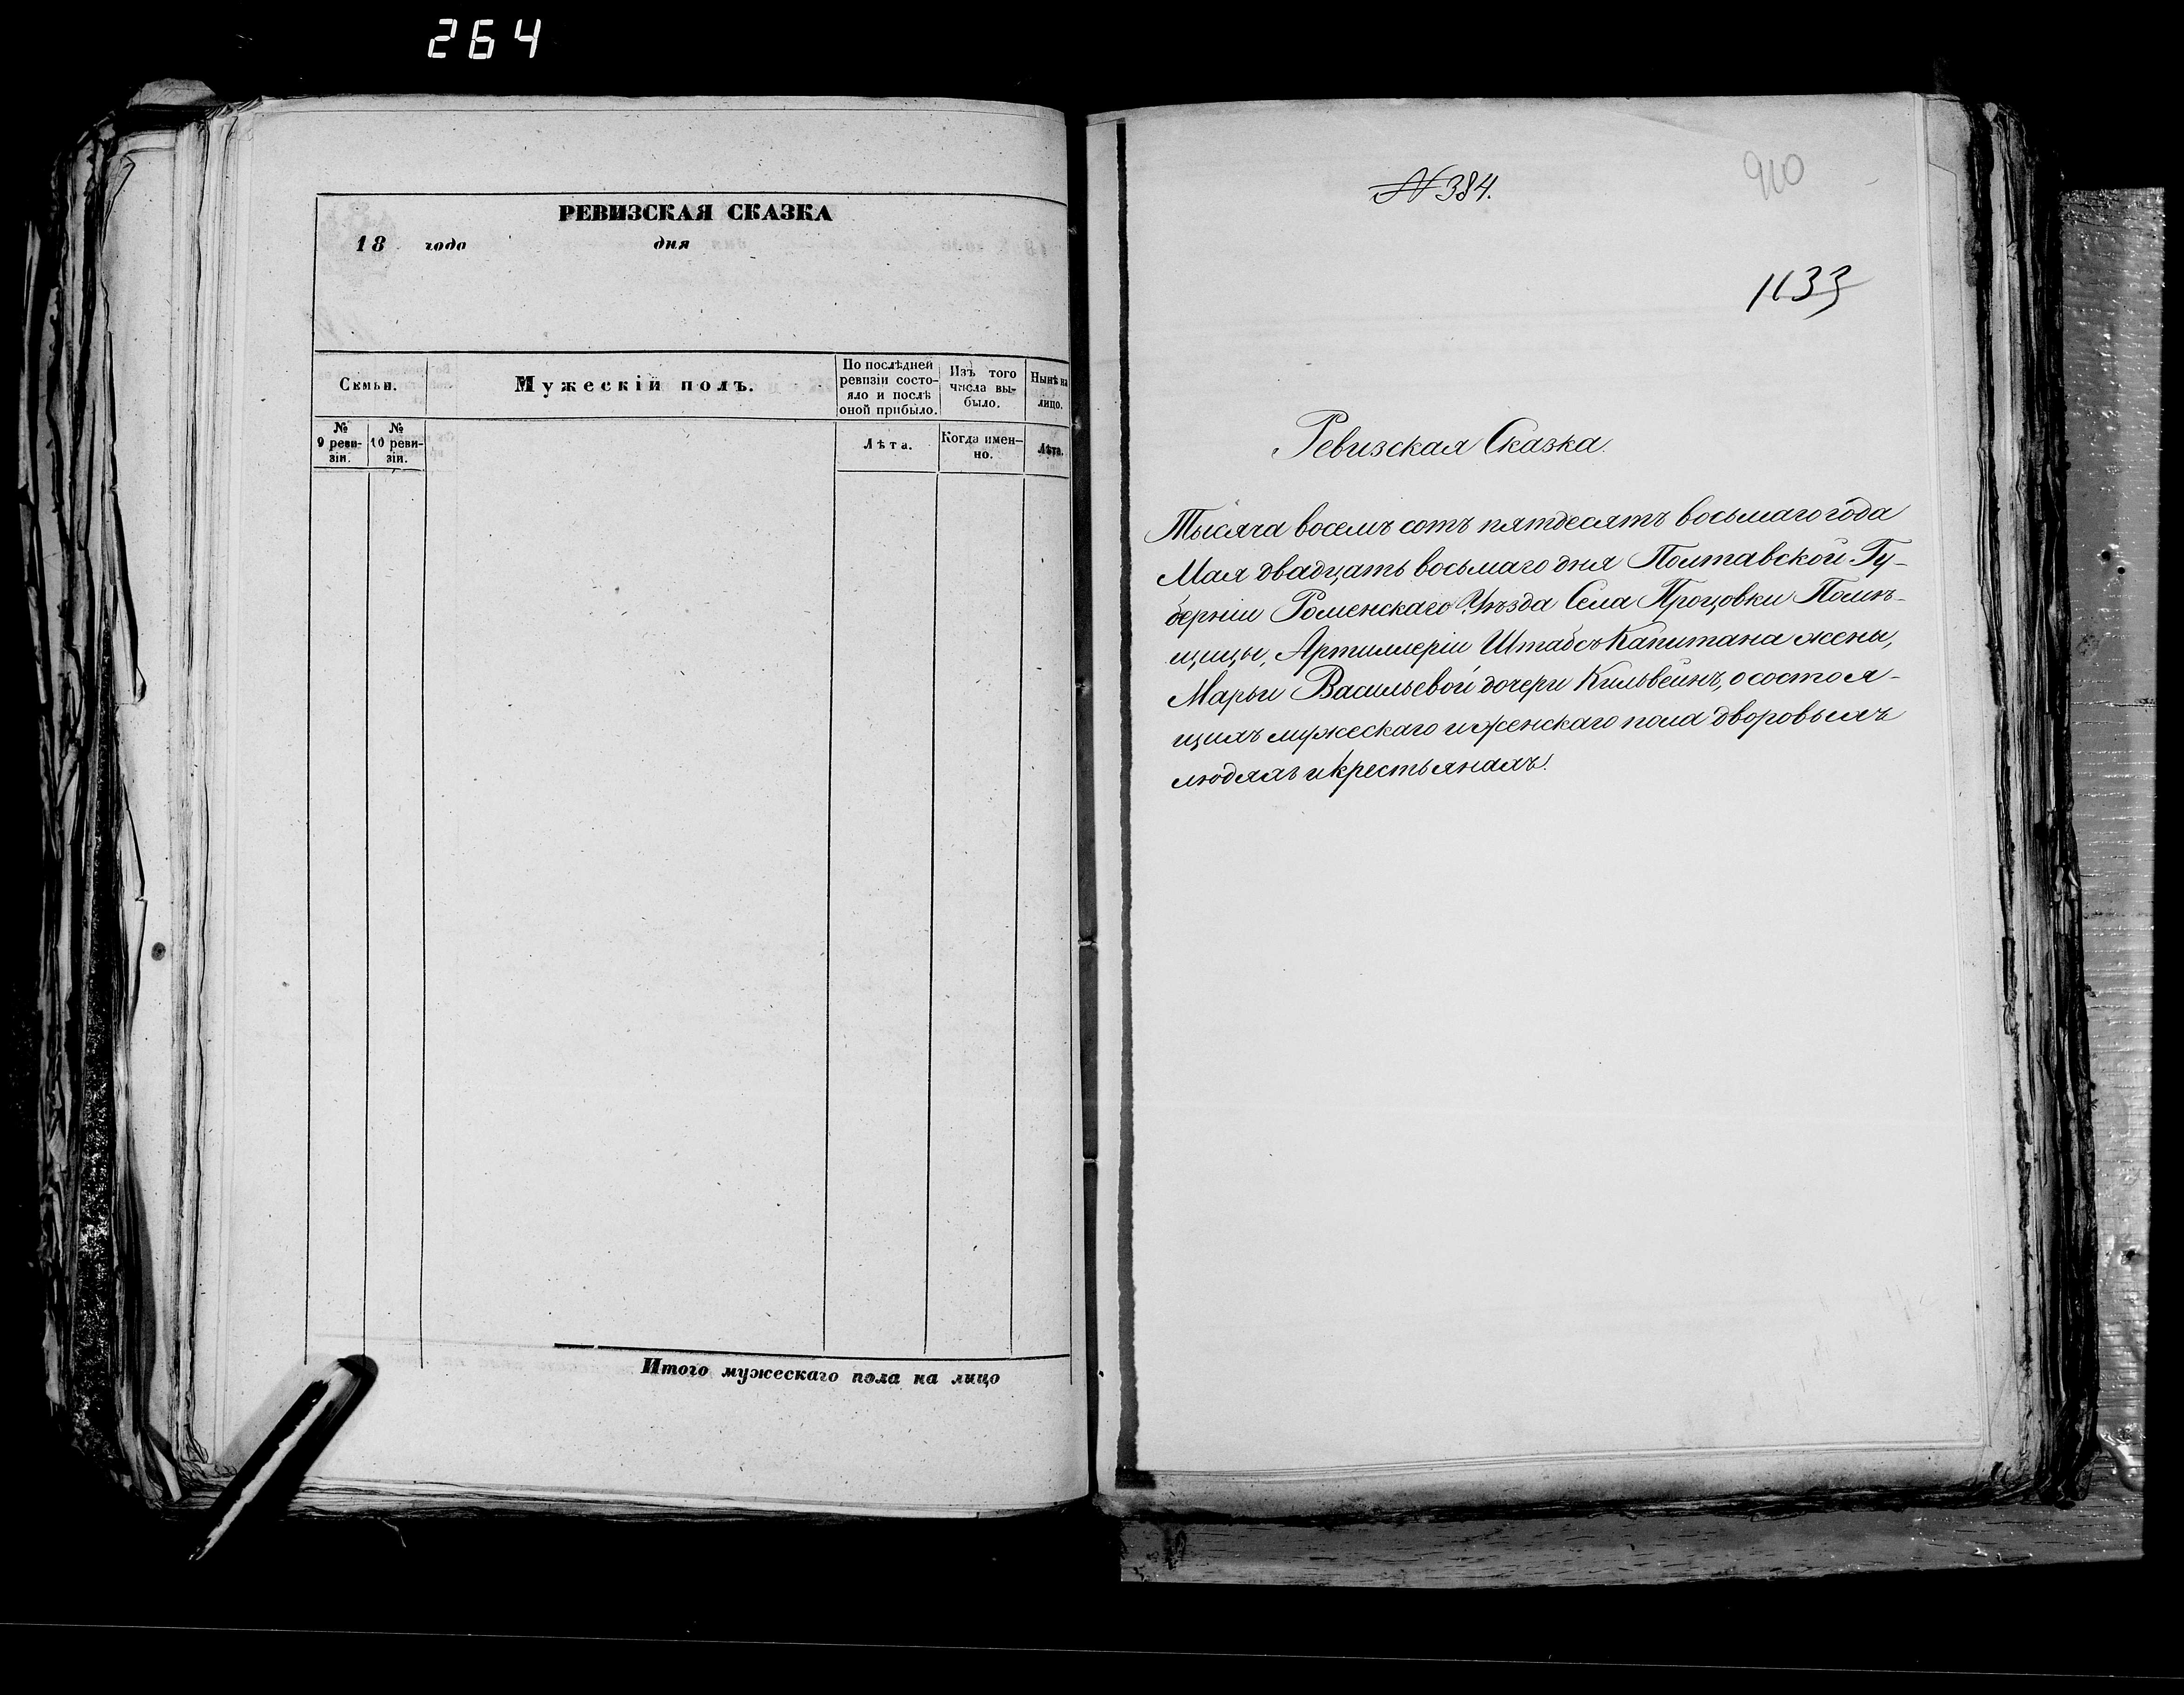 264
РЕВИЗСКАЯ СКАЗКА
18 года дня
Семьи.
Мужескій полъ.
По послѣдней
ревизіи состо-
яло и послѣ
оной прибыло.
Изъ того
числа вы-
было.
Нынѣ на
лицо.
№
9 реви-
зіи.
№
10 реви-
зіи.
Лѣта.
Когда имен-
но.
Лѣта.
Итого мужескаго пола на лицо
№ 384.
910
1133
Ревизская Сказка.
Тысяча восемъ сотъ пятдесятъ восьмаго года
Мая двадцать восьмаго дня Полтавской Гу-
берніи Роменскаго Уѣзда Села Процовки Помѣ-
щицы, Артиллеріи Штабсъ Капитана жены,
Марьи Васильевой дочери Кильвейнъ, о состоя-
щихъ мужескаго и женскаго пола дворовыхъ
людяхъ и крестьянахъ.